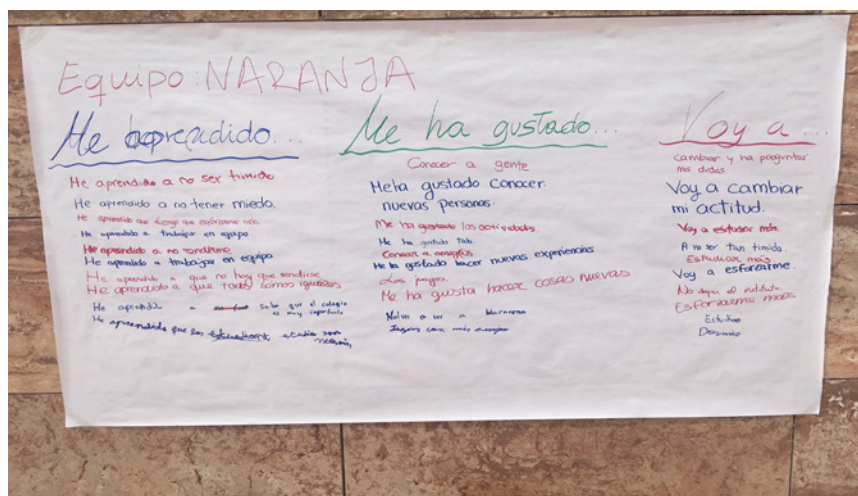 Equipo: NARANJA
Me aprendido...
He aprendido a no ser timido
He aprendido a no tener miedo.
He aprendido que tengo que esforzarme más
He aprendido a trabajar en equipo
He aprendido a no rendirme
He aprendido a trabajar en equipo
He aprendido a que no hay que rendirse
He aprendido a que todos somos iguales
He aprendido a sabe que el colegio
es muy importante
He aprendido que los
Me ha gustado...
Conocer a gente
Meha gustado conocer
nuevas personas.
Me ha gustado las actividades.
Me ha gustado todo.
Conocer a amig@s
Me ha gustado hacer nuevas experiencias
Los juegos
Me ha gusta hacer cosas nuevas
Volver a ver a
Voy a...
cambiar y ha preguntar
mis dudas
Voy a cambiar
mi actitud.
Voy a estudiar más
A no ser tan timida.
Estudiar más.
Voy a esforzarme.
No dejar el instituto.
Esforzarme más
Estudiar